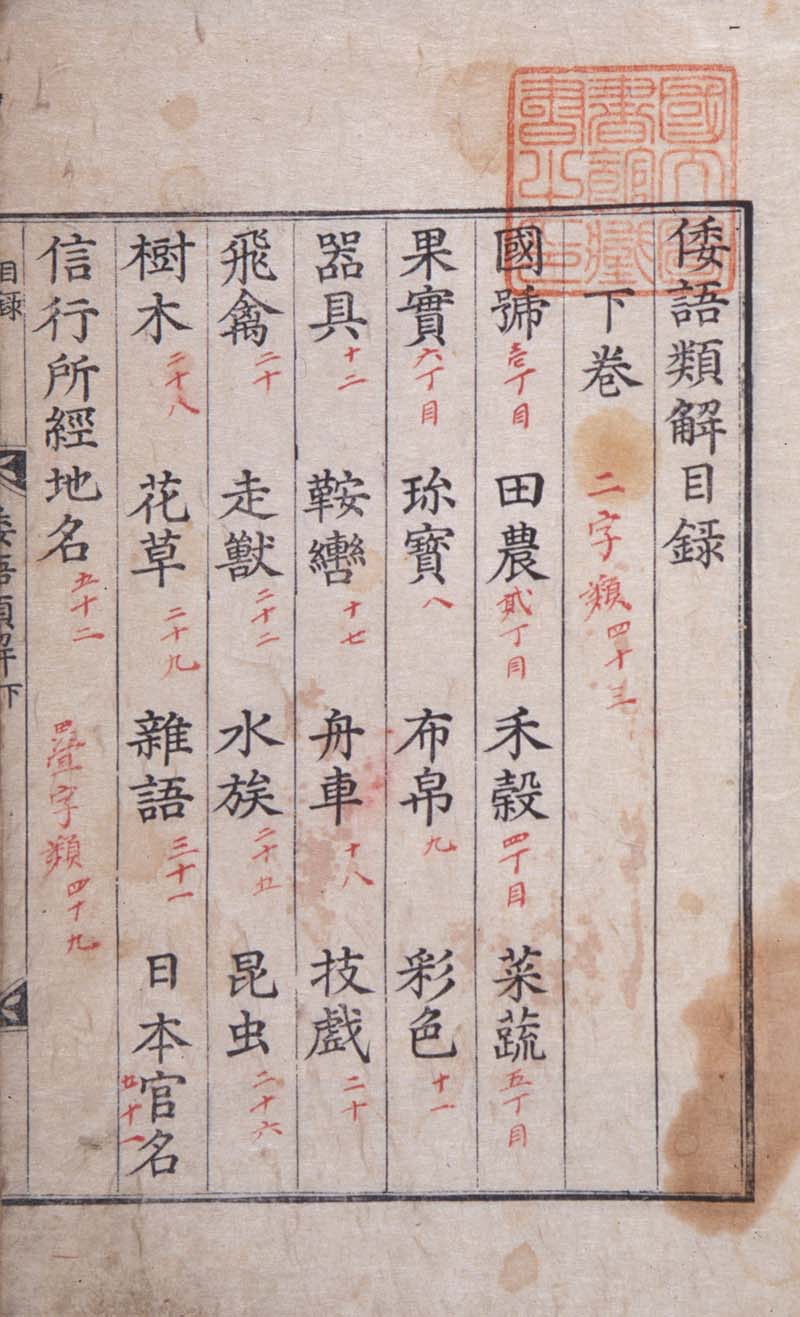 倭語類解目録
下卷 二字類四十三
國號 壱丁目 田農 貳丁目 禾穀 四丁目 菜蔬 五丁目
果實 六丁目 珎寶 八 布帛 九 彩色 十一
器具 十二 鞍轡 十七 舟車 十八 技戲 二十
飛禽 二十 走獸 二十二 水族 二十五 昆虫 二十六
樹木 二十八 花草 二十九 雜語 三十一 日本官名 五十一
信行所經地名 五十二 疊字類 四十九
目録
倭語類解下